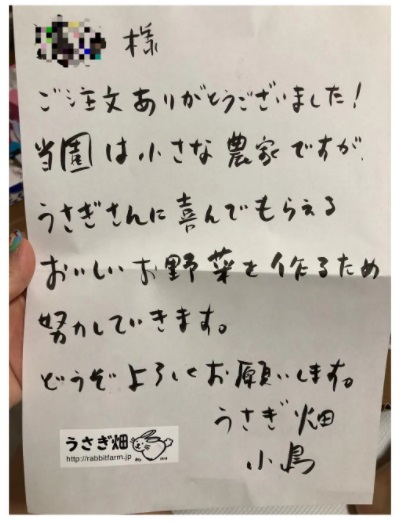 様
ご注文ありがとうございました!
当園は小さな農家ですが、
うさぎさんに喜んでもらえる
おいしいお野菜を作るため
努力していきます。
どうぞよろしくお願いします。
うさぎ畑
小島
うさぎ畑
http://rabbitfarm.jp